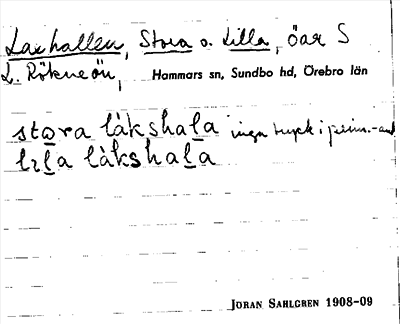 Laxhallen, Stora o. Lilla, öar S
L. Rökneön, Hammars sn, Sundbo hd, Örebro län
stora làkshaḻa inga tryck i prim.-
lɪḻa làkshaḻa
JÖRAN SAHLGREN 1908-09